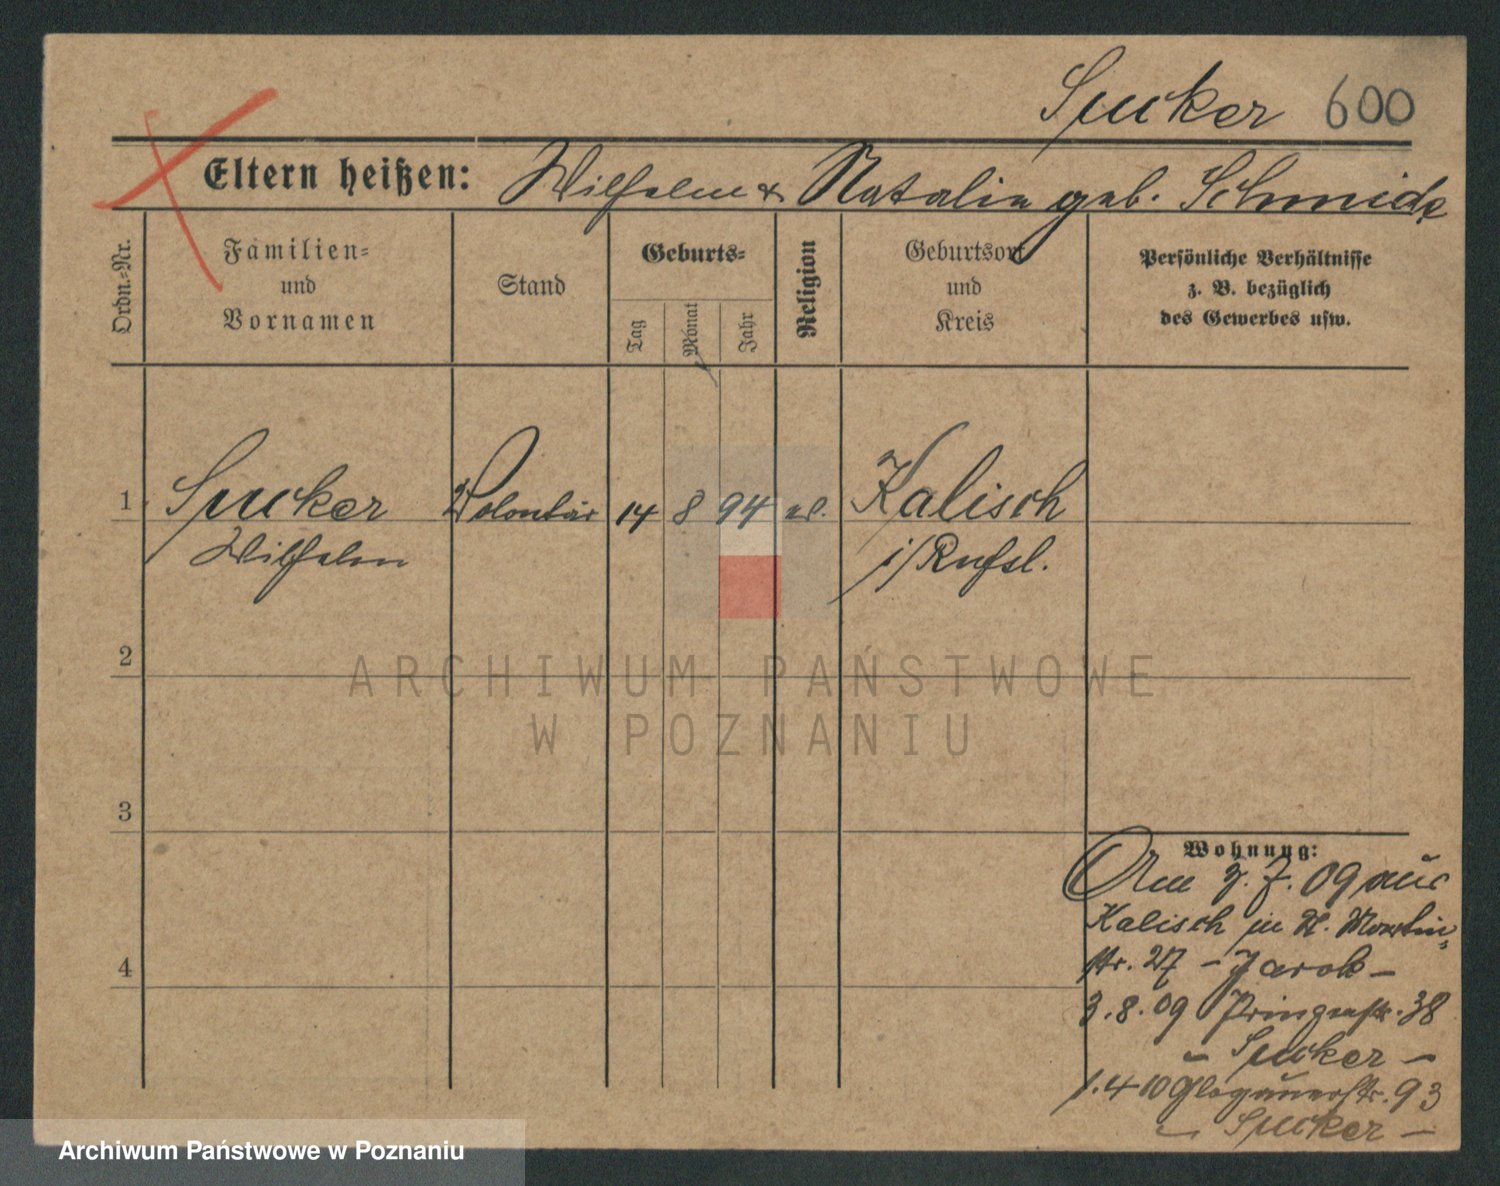 Spucker 600
Eltern heißen: Wilhelm & Natalie geb. Schmidt
Ordn.-Nr.
Familien-
und
Vornamen
Stand
Geburts-
Tag
Monat
Jahr
Religion
Geburtsort
und
Kreis
Persönliche Verhältnisse
z. B. bezüglich
des Gewerbes usw.
1 Spucker Volontär 14 8 94 ev. Kalisch
Wilhelm i/Rußl.
2
3
4
Wohnung:
Am 3.7.09 aus
Kalisch in St. Martin-
str. 27 – Jarok –
3.8.09 Prinzenstr. 38
– Spucker –
1.4 10 Glogauerstr. 93
– Spucker –
ARCHIWUM PAŃSTWOWE
W POZNANIU
Archiwum Państwowe w Poznaniu